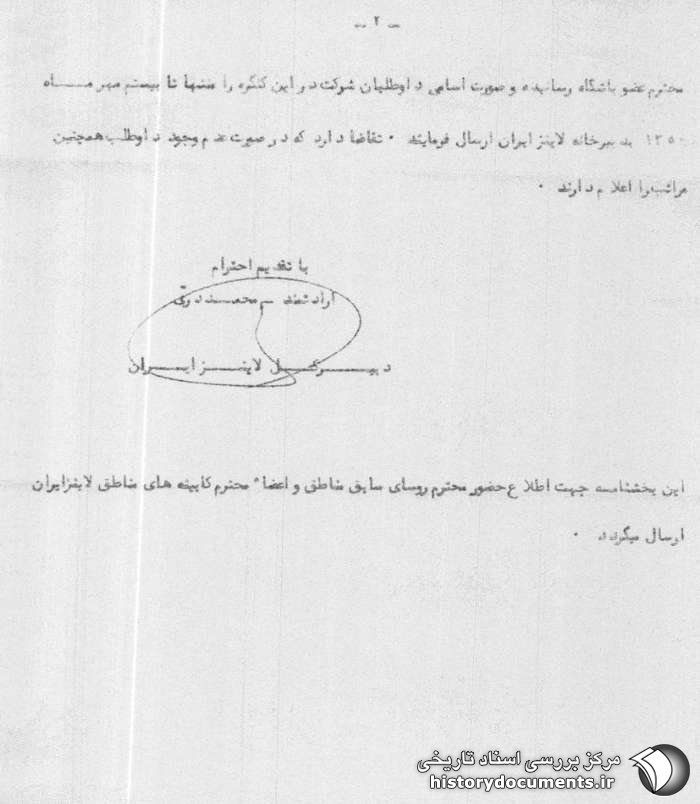 - ۲ -
محترم عضو باشگاه رسانیده و صورت اسامی داوطلبان شرکت در این کنگره را منتها تا بیستم مهر مـاه
۱۳۵۰ به دبیرخانه لاینز ایران ارسال فرمایند . تقاضا دارد که در صورت عدم وجود داوطلب همچنین
مراتب را اعلام دارند .
با تقدیم احترام
ارادتمند
دبیـــر کـــل لاینـــز ایـــران
این بخشنامه جهت اطلاع حضور محترم روسای سابق مناطق و اعضاء محترم کابینه های مناطق لاینز ایران
ارسال میگردد .
مرکز بررسی اسناد تاریخی
historydocuments.ir